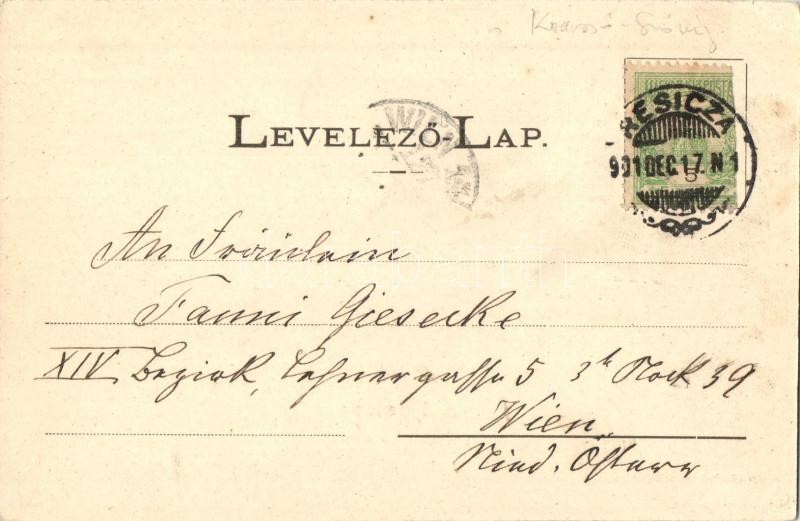 Krassó-Szörény
LEVELEZŐ-LAP.
WIEN
RESICZA
901 DEC. 17. N 1
5
An Fräulein
Fanni Giesecke
XIV Bezirk, Lehnergasse 5 3ten Stock 39
Wien
Nied. Österr